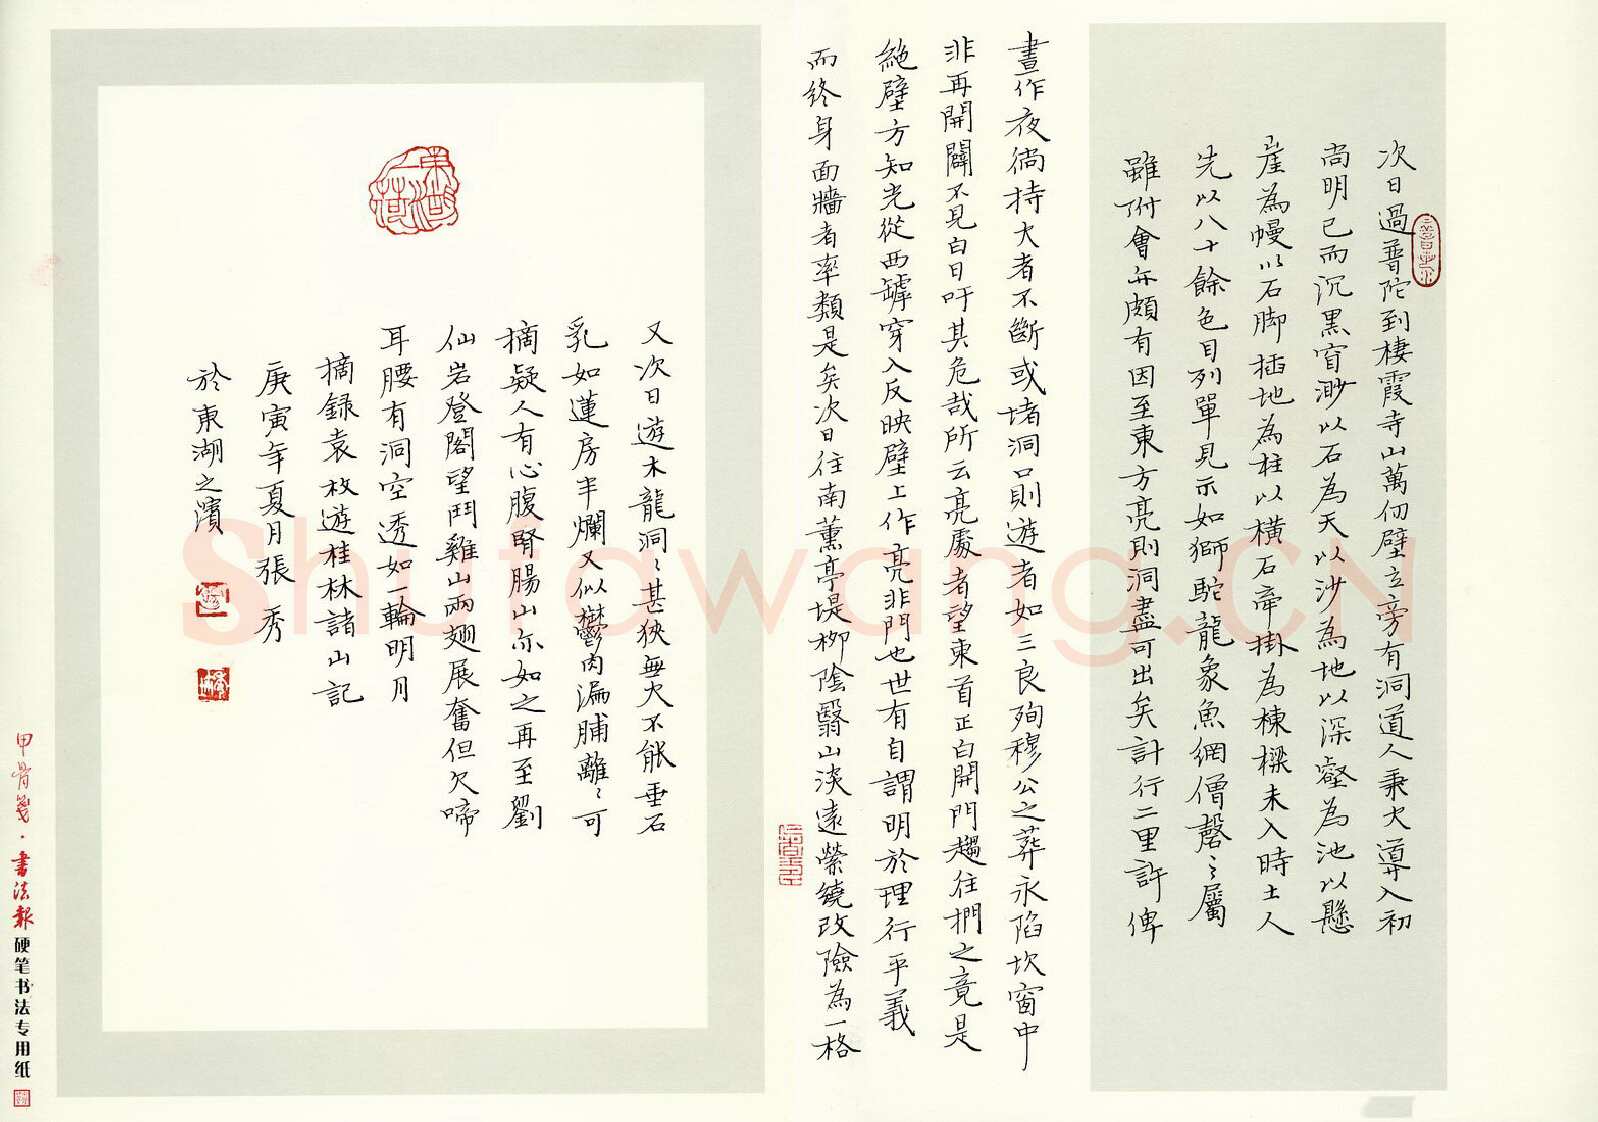 次日過普陀到棲霞寺山萬仞壁立旁有洞道人秉火導入初
尚明已而沉黑窅渺以石為天以沙為地以深壑為池以懸
崖為幔以石脚插地為柱以橫石牽掛為棟樑未入時土人
先以八十餘色目列單見示如獅駝龍象魚網僧磬之屬
雖附會亦頗有因至東方亮則洞盡可出矣計行二里許俾
晝作夜倘持火者不斷或堵洞口則遊者如三良殉穆公之葬永陷坎窞中
非再開闢不見白日吁其危哉所云亮處者望東首正白開門趨往捫之竟是
絕壁方知光從西罅穿入反映壁上作亮非門也世有自謂明於理行乎義
而終身面牆者率類是矣次日往南薰亭堤柳陰翳山淡遠縈繞改險為一格
又次日遊木龍洞洞甚狹無火不能垂石
乳如蓮房半爛又似鬱肉漏脯離離可
摘疑人有心腹腎腸山亦如之再至劉
仙岩登閣望鬥雞山兩翅展奮但欠啼
耳腰有洞空透如一輪明月
摘録袁枚遊桂林諸山記
庚寅年夏月張 秀
於東湖之濱
甲骨箋·書法報硬笔书法专用纸
Shufawang.CN